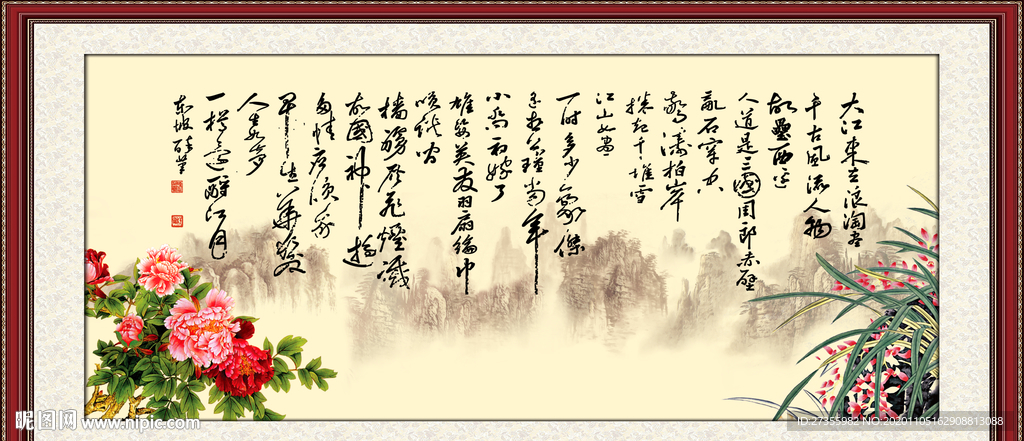 大江東去浪淘盡
千古風流人物
故壘西邊
人道是三國周郎赤壁
亂石穿空
驚濤拍岸
捲起千堆雪
江山如畫
一時多少豪傑
遙想公瑾當年
小喬初嫁了
雄姿英發羽扇綸巾
談笑間
檣虜灰飛煙滅
故國神遊
多情應笑我
早生華髮
人生如夢
一樽還酹江月
東坡醉筆
昵图网 www.nipic.com
ID:27355982 NO:20201105162908813088